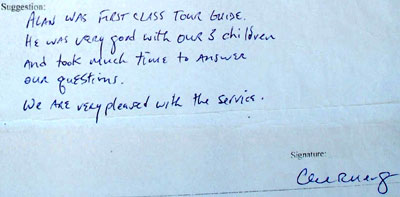 Suggestion:
ALAN WAS FIRST CLASS TOUR GUIDE.
HE WAS VERY good with OUR 3 children
AND took much time to ANSWER
OUR questions.
WE ARE very pleased with the service.
Signature: